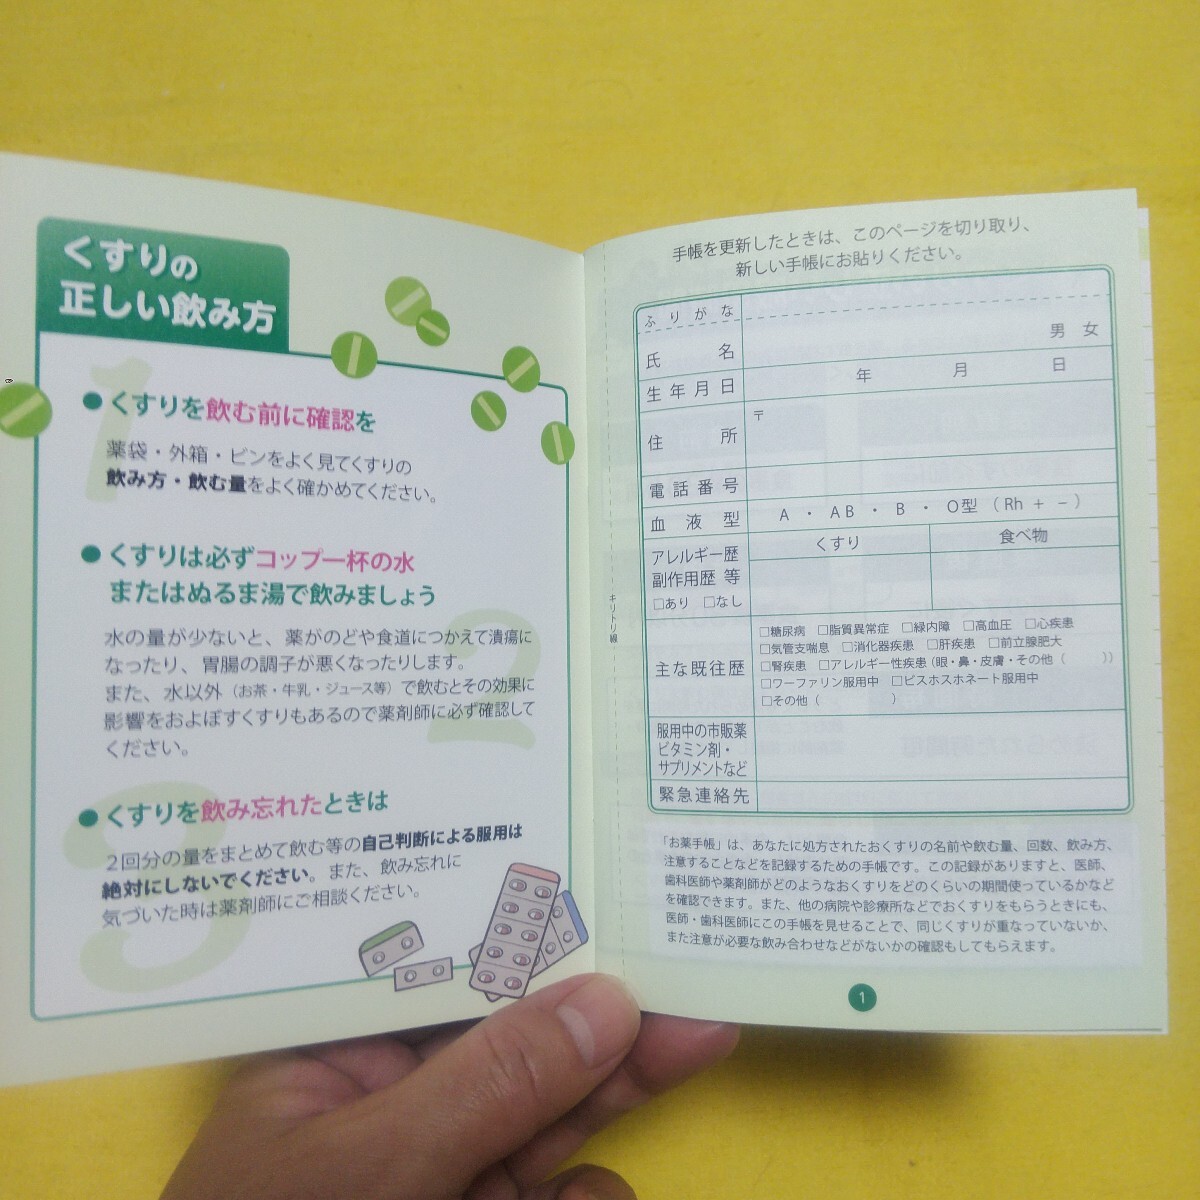 くすりの
正しい飲み方
1
●くすりを飲む前に確認を
薬袋・外箱・ビンをよく見てくすりの
飲み方・飲む量をよく確かめてください。
2
●くすりは必ずコップ一杯の水
またはぬるま湯で飲みましょう
水の量が少ないと、薬がのどや食道につかえて潰瘍に
なったり、胃腸の調子が悪くなったりします。
また、水以外（お茶・牛乳・ジュース等）で飲むとその効果に
影響をおよぼすくすりもあるので薬剤師に必ず確認して
ください。
3
●くすりを飲み忘れたときは
２回分の量をまとめて飲む等の自己判断による服用は
絶対にしないでください。また、飲み忘れに
気づいた時は薬剤師にご相談ください。
キリトリ線
手帳を更新したときは、このページを切り取り、
新しい手帳にお貼りください。
ふりがな
氏名 男 女
生年月日 年 月 日
住所 〒
電話番号
血液型 A ・ AB ・ B ・ O型 （ Rh ＋ － ）
アレルギー歴 くすり 食べ物
副作用歴 等
□あり □なし
主な既往歴
□糖尿病 □脂質異常症 □緑内障 □高血圧 □心疾患
□気管支喘息 □消化器疾患 □肝疾患 □前立腺肥大
□腎疾患 □アレルギー性疾患（眼・鼻・皮膚・その他（ ））
□ワーファリン服用中 □ビスホスホネート服用中
□その他（ ）
服用中の市販薬
ビタミン剤・
サプリメントなど
緊急連絡先
「お薬手帳」は、あなたに処方されたおくすりの名前や飲む量、回数、飲み方、
注意することなどを記録するための手帳です。この記録がありますと、医師、
歯科医師や薬剤師がどのようなおくすりをどのくらいの期間使っているかなど
を確認できます。また、他の病院や診療所などでおくすりをもらうときにも、
医師・歯科医師にこの手帳を見せることで、同じくすりが重なっていないか、
また注意が必要な飲み合わせなどがないかの確認もしてもらえます。
1